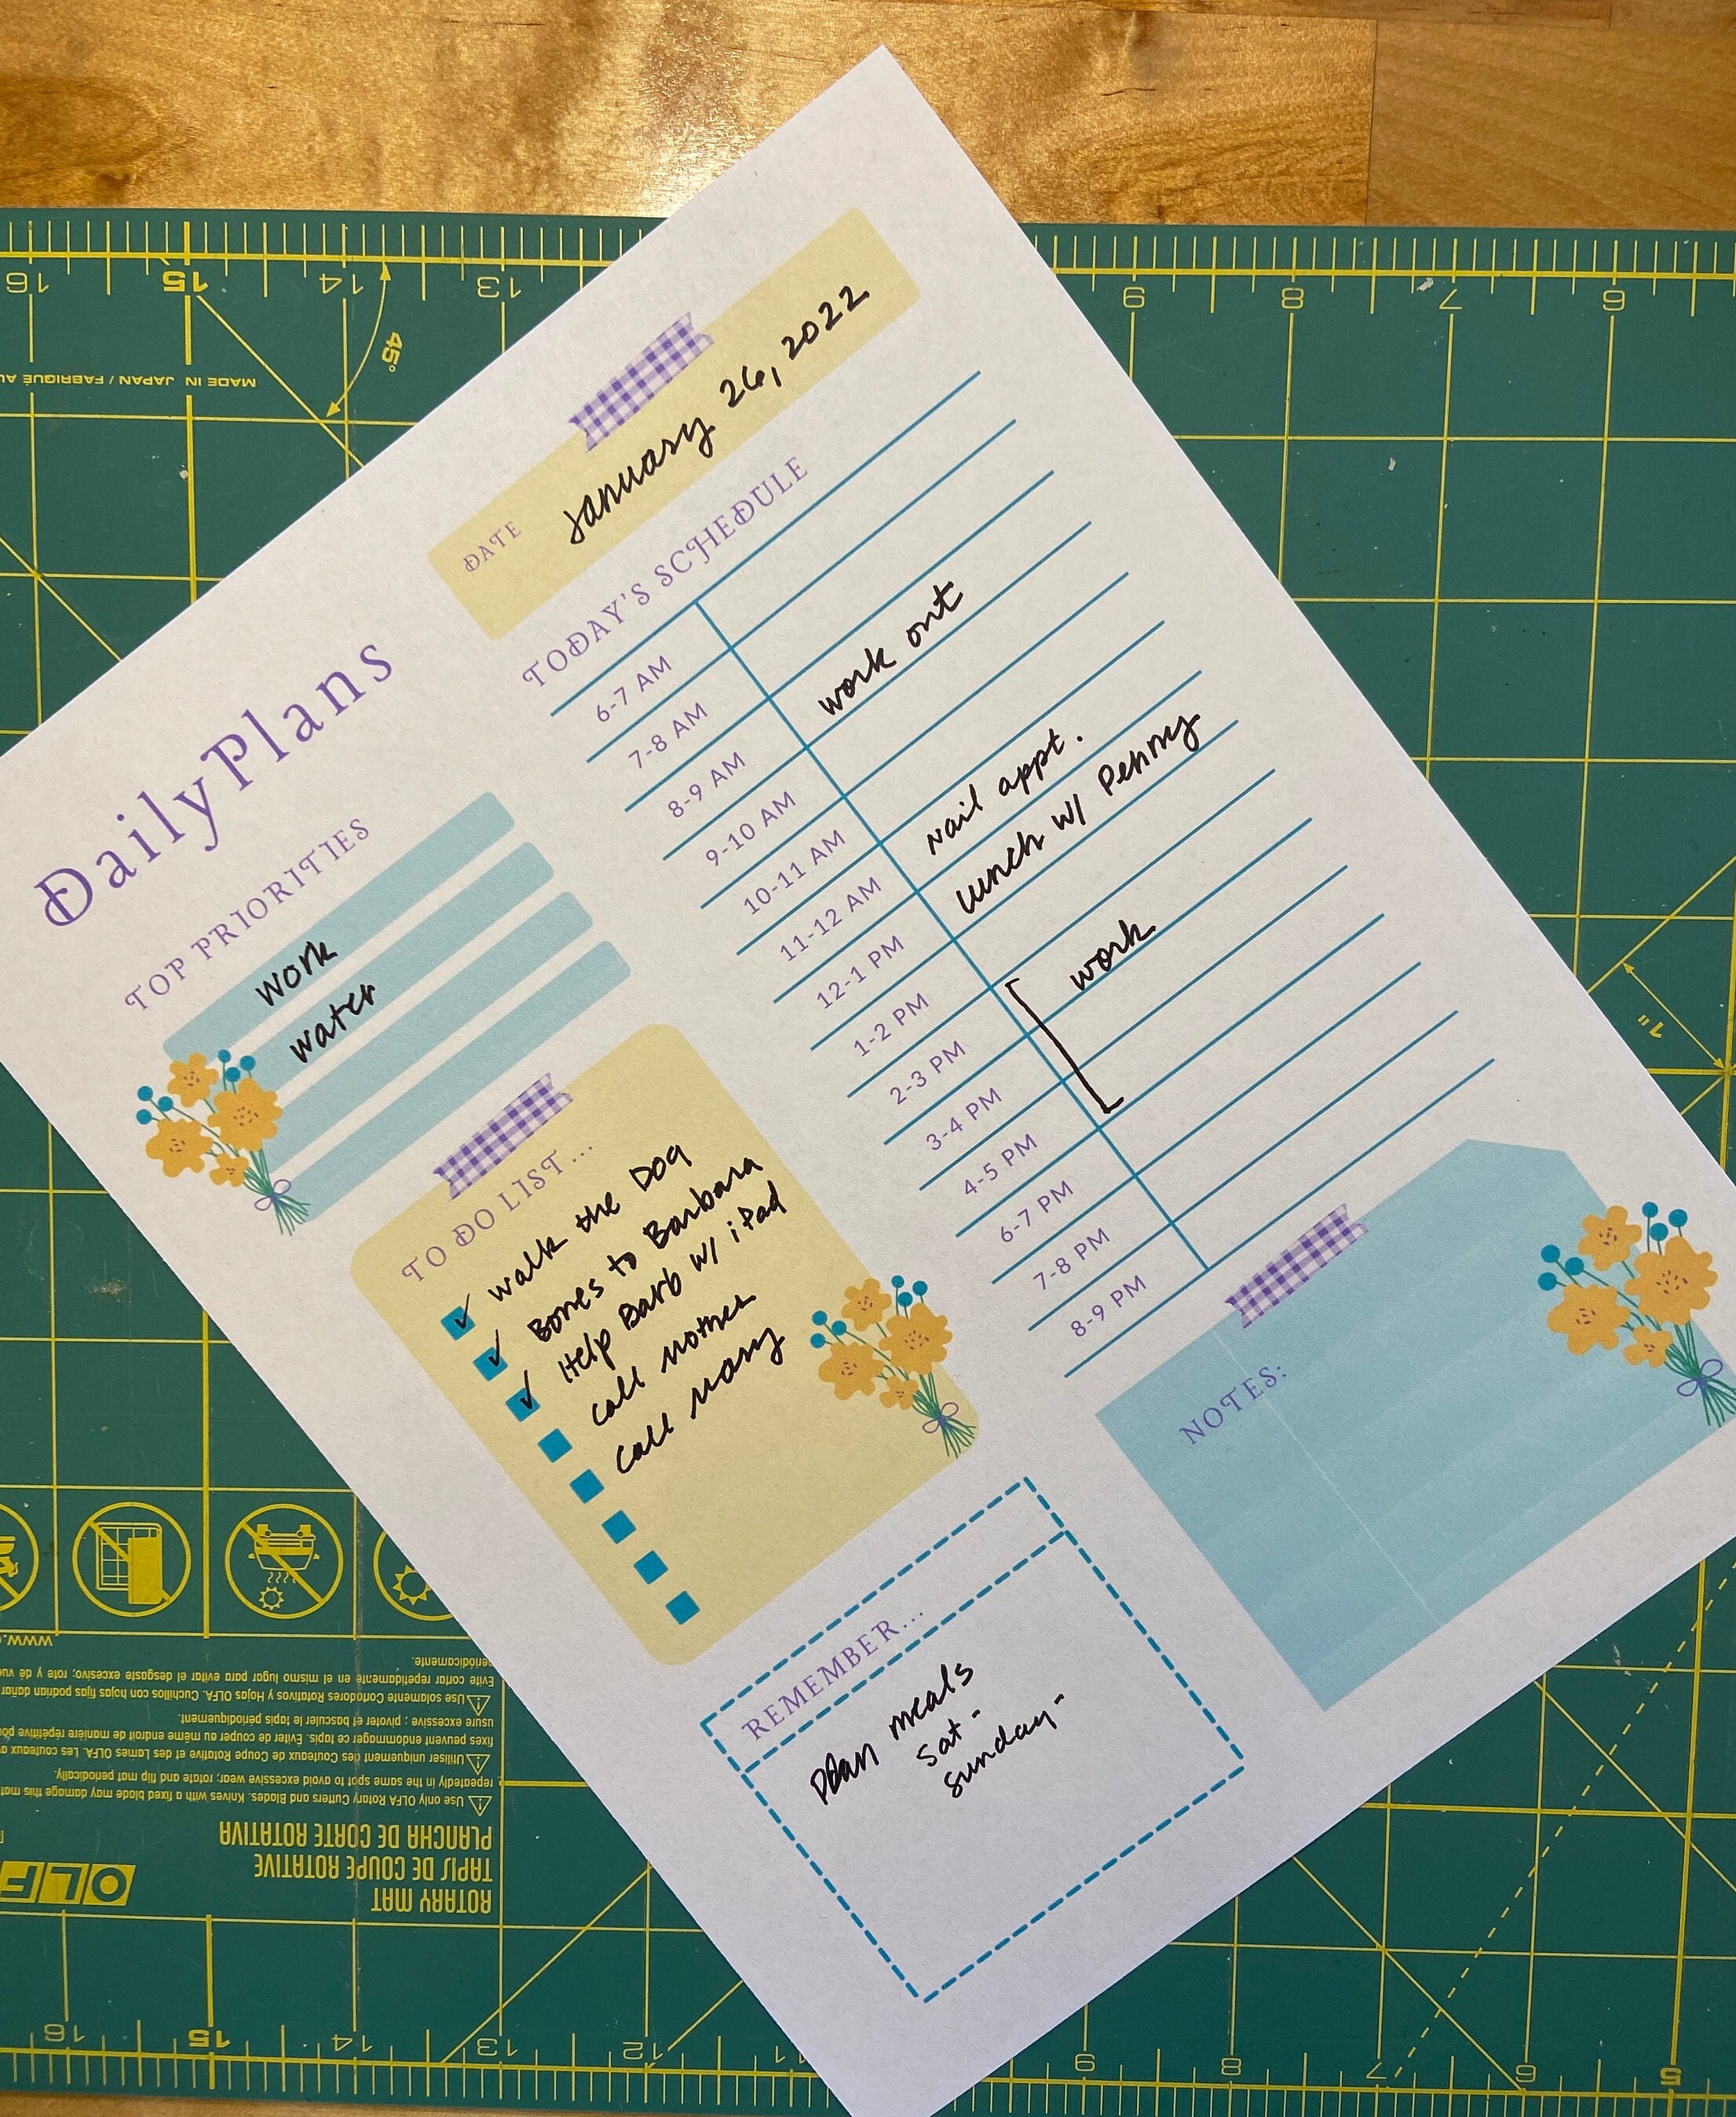 DailyPlans
DATE January 26, 2022
TOP PRIORITIES
work
water
TO DO LIST...
✓ walk the Dog
✓ Bones to Barbara
✓ Help Barb w/ iPad
call mother
call mary
TODAY'S SCHEDULE
6-7 AM
7-8 AM
8-9 AM work out
9-10 AM
10-11 AM
11-12 AM Nail appt.
12-1 PM lunch w/ Penny
1-2 PM
2-3 PM work
3-4 PM
4-5 PM
6-7 PM
7-8 PM
8-9 PM
REMEMBER...
plan meals
Sat -
Sunday -
NOTES:
16 15 14 13 9 8 7 6
45°
MADE IN JAPAN / FABRIQUÉ AU
1"
ROTARY MAT
TAPIS DE COUPE ROTATIVE
PLANCHA DE CORTE ROTATIVA
Use only OLFA Rotary Cutters and Blades. Knives with a fixed blade may damage this mat
repeatedly in the same spot to avoid excessive wear; rotate and flip mat periodically.
Utiliser uniquement des Couteaux de Coupe Rotative et des Lames OLFA. Les couteaux
fixes peuvent endommager ce tapis. Éviter de couper au même endroit de manière répétitive
usure excessive ; pivoter et basculer le tapis périodiquement.
Use solamente Cortadores Rotativos y Hojas OLFA. Cuchillos con hojas fijas podrían dañar
Evite cortar repetidamente en el mismo lugar para evitar el desgaste excesivo; rote y dé
periódicamente.
www.
16 15 14 13 12 11 9 8 7 6 5